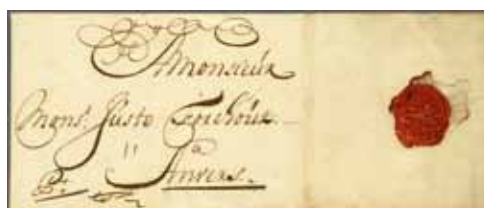 A Monsieur
Mons.r Justo
à
Anvers.